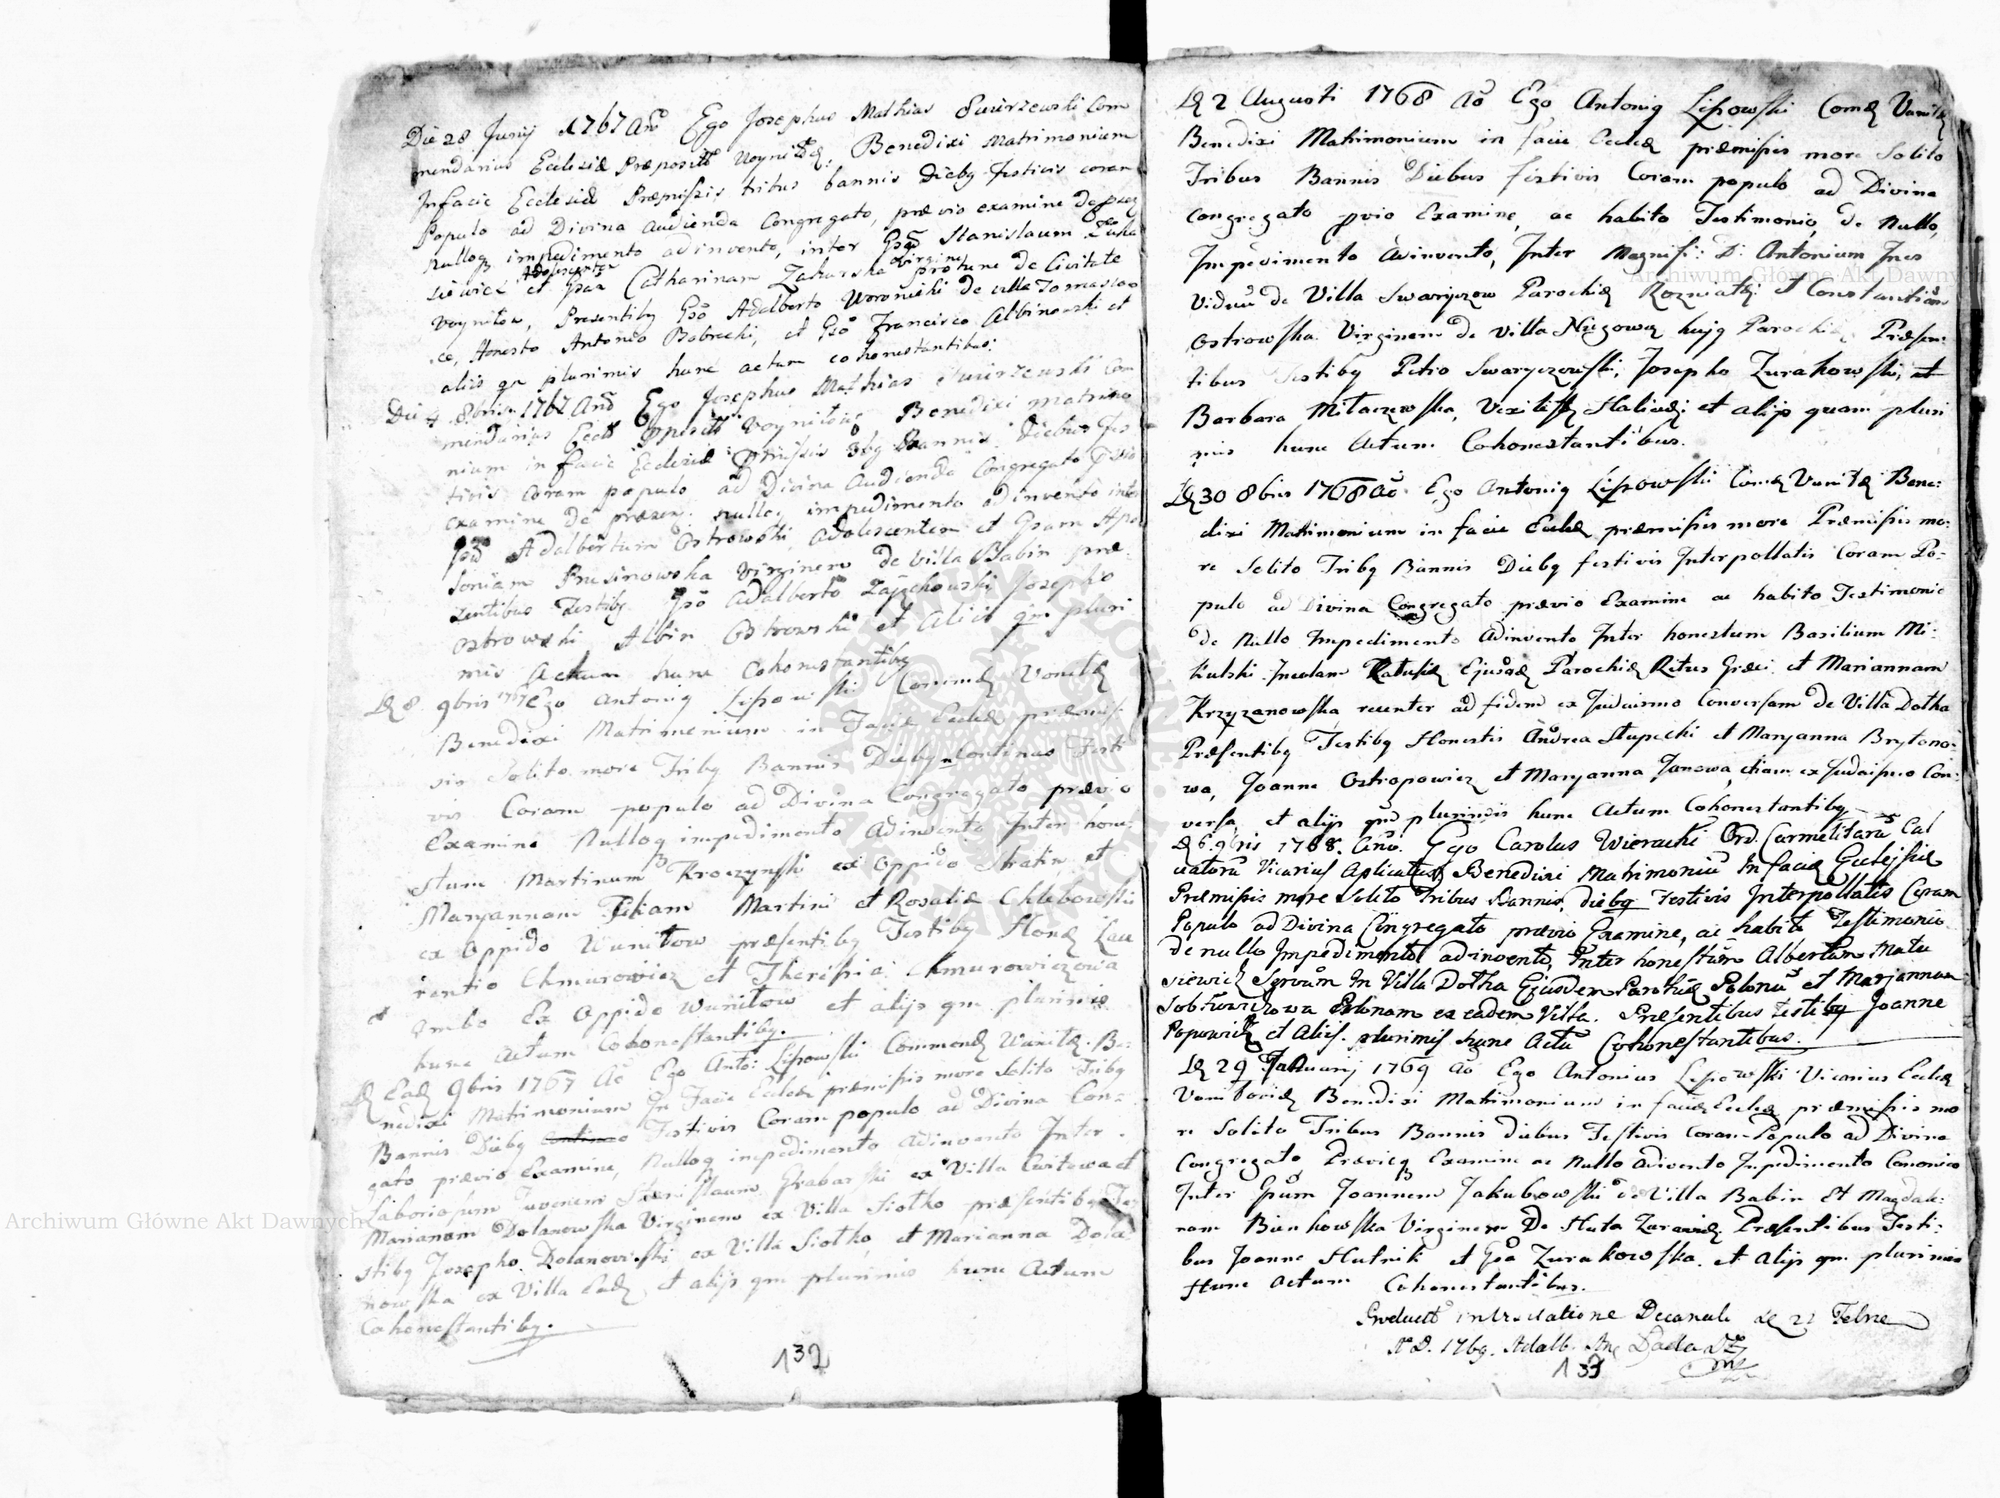 Die 28 Junij 1767 Anō Ego Josephus Mathias Swirzewski Com
mendarius Ecclesiæ Præposit Woynil: Benedixi Matrimonium
In facie Ecclesiæ Præmissis tribus bannis diebq festivis coram
Populo ad Divina audienda Congregato, prævio examine de
nulloq impedimento adinvento, inter Gsūm Stanislaum
Adolescentem virginem
et Gsam Catharinam Zaharska pro tunc de Civitate
Woyniłow, Presentibq Gsō Adalberto Woronicki de villa Tomaszo
ce, Honesto Antonio Bobrecki, et Gsō Francisco Albinowski et
aliis qm plurimis hunc actum cohonestantibus.
Die 4 8bris 1767 Anō Ego Josephus Mathias Swirzewski Com
mendarius Eccl Præposit Woyniloviæ Benedixi matrimo
nium in facie Ecclesiæ præmissis 3bq Bannis Diebus Fes
tivis coram populo ad Divina Audienda Congregato prævio
examine de præsen: nulloq impedimento adinvento inter
Gsūm Adalbertum Ostrowski, adolescentem et Gsam Apo
loniam Prusinowska virginem de villa Babin præ-
sentibus Testibq Gsō Adalberto Zajęchowski Josepho
Ostrowski Albin Ostrowski et Aliis qm pluri
mis Actum hunc Cohonestantibq
D 8 9bris 1767 Ego Antoniq Lipowski Commen Vonił
Benedixi Matrimonium in Facie Eccleæ præmis
sis Solito more Tribq Bannis Diebq Continuo Festi
vis Coram populo ad Divina Congregato prævio
Examine Nulloq impedimento Adinvento Inter hone
stum Martinum Kroczynski ex Oppido Stratin et
Maryannam Filiam Martini et Rosaliæ Chlebowski
ex Oppido Wuniłow præsentibq Testibq Hones Lau
rentio Chmurowicz et Theresia Chmurowiczowa
Ambo Ex Oppido Wuniłow et alijs qm plurimis
hunc Actum Cohonestantibq.
D Ead 9bris 1767 Aō Ego Anto: Lipowski Commend Wunił: Be:
nedixi Matrimonium In Facie Eccleæ præmissis more Solito Tribq
Bannis Diebq Festivis Coram populo ad Divina Con=
gato prævio Examine, Nulloq impedimento Adinvento Inter
Laboriosum Juvenem Stanislaum Grabarski ex Villa Cwitowa et
Mariannam Dolanowska Virginem ex Villa Siołko præsentibq Te
stibq Josepho Dolanowski ex Villa Siołko, et Marianna Dola
nowska ex Villa Ead, et alijs qm plurimis hunc Actum
Cohonestantibq.
132
D 2 Augusti 1768 Aō Ego Antoniq Lipowski Comen Vunił
Benedixi Matrimonium in facie Eccleæ præmissis more Solito
Tribus Bannis Diebus festivis Coram populo ad Divina
Congregato pvio Examine, ac habito Testimonio, de Nullo,
Impedimento Adinvento, Inter Magnifi: D: Antonium Jues
Viduū de Villa Swaryczow Parochiæ Rozniat: et Constantiam
Ostrowska Virginem de Villa Niegowce hujq Parochiæ, Præsen:
tibus Testibq Petro Swaryczewski, Josepho Zurakowski, et
Barbara Miłaczewska, Halic: et alijs quam pluri
mis hunc Actum Cohonestantibus.
D 30 8bris 1768 Aō. Ego Antoniq Lipowski Comen Vunił Bene:
dixi Matrimonium in facie Eccleæ præmissis more Præmissis mo:
re Solito Tribq Bannis Diebq festivis Interpollatis Coram Po=
pulo ad Divina Congregato prævio Examine ac habito Testimonio
de Nullo Impedimento Adinvento Inter honestum Basilium Mi:
kulski Incolam Ejusdē Parochiæ Ritus Græci et Mariannam
Krzyzanowska recenter ad fidem ex Judaismo Conversam de Villa Dołha
Præsentibq Testibq Honestis Andrea Słupecki et Maryanna Brytano:
wa, Joanne Ostropowicz et Maryanna Janowa, etiam ex Judaismo Con:
versa, et alijs qm plurimis hunc Actum Cohonestantibq.
D 6 9bris 1768. Anō. Ego Carolus Wieracki Ord. Carmelitarū Cal
ceatorū Vicariuf Aplicatus Benedixi Matrimoniū In facie Ecclesiæ
Præmissis more Solito Tribus Bannis, diebq Festivis Interpollatis Coram
Populo ad Divina Congregato prævio Examine, ac habito Testimonio
de nullo Impedimento adinvento, Inter honestum Albertum Matu
siewicz In Villa Dołha Ejusdem Parochiæ Polonū et Maryannam
Polonam ex eadem Villa. Præsentibus testibq Joanne
Popowicz et Aliis plurimis hunc Actū Cohonestantibus.
D 29 Januarij 1769 Aō Ego Antonius Lipowski Vicarius Eccleæ
Voniloviæ Benedixi Matrimonium in facie Eccleæ, præmissis mo
re Solito Tribus Bannis diebus Festivis Coram Populo ad Divina
Congregato Prævioq Examine ac Nullo Adivento Impedimento Canonico
Inter Gsūm Joannem Jakubowski de Villa Babin et Magdale:
nam Bienkowska Virginem De Huta Præsentibus Testi:
bus Joanne Hutnik et Gsā Zurakowska et Alijs qm plurimis
Hunc Actum Cohonestantibus.
Product in Visitatione Decanali die 21 Febr
A D. 1769. Adalb.
133
Archiwum Główne Akt Dawnych
Archiwum Główne Akt Dawnych